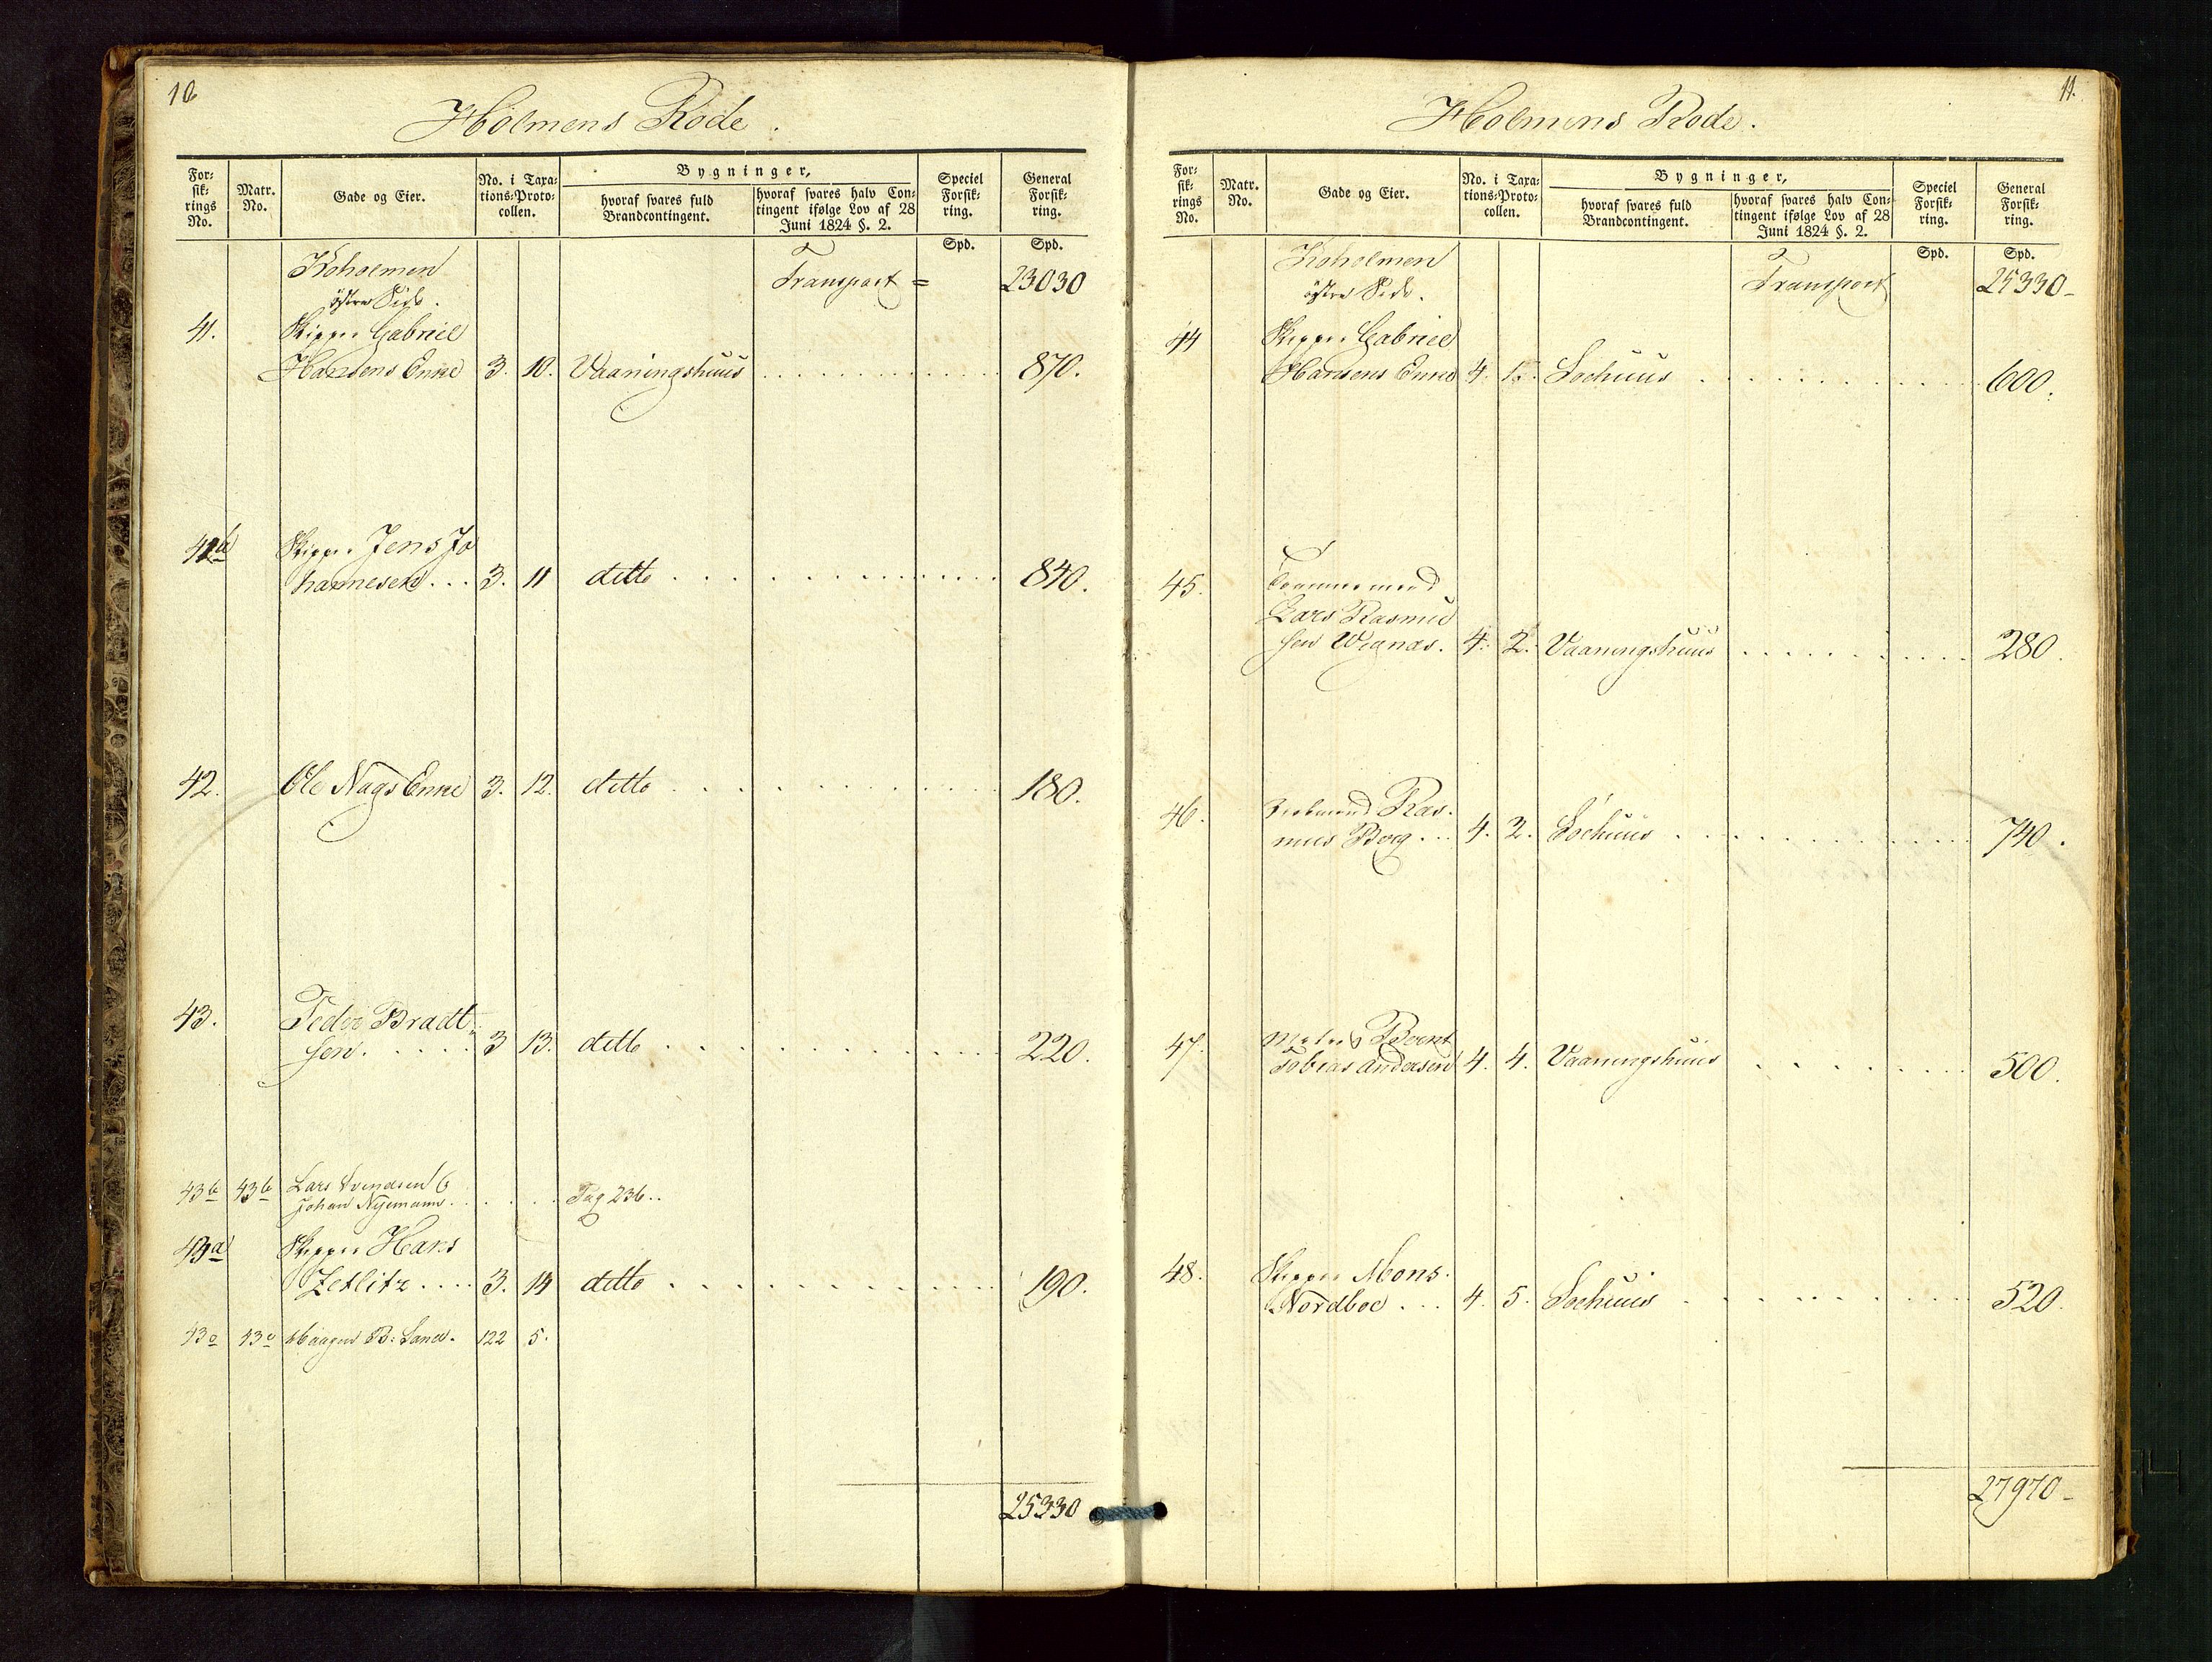 10
Holmens Rode.
For=
sik=
rings
No.
Matr.
No.
Gade og Eier.
No. i Taxa=
tions=Proto=
collen.
Bygninger,
hvoraf svares fuld
Brandcontingent.
hvoraf svares halv Con=
tingent ifølge Lov af 28
Juni 1824 §. 2.
Speciel
Forsik=
ring.
General
Forsik=
ring.
Spd. Spd.
Koholmen Transport = 23030
østre Side.
41. Skipper Gabriel
Hansens Enke 3. 10. Vaaningshuus 870.
Skipper Jens Jo
hannesen 3. 11 ditto 840.
42. Ole Nags Enke 3. 12. ditto 180.
43. Peder Bradt
sen 3 13. ditto 220.
43b 43b Lars Svendsen &
Johan Nyemann Pag 236..
Skipper Hans
Zetlitz 3. 14 ditto 190.
43c 43c Haagen B. Sand. 122 5.
25330
11.
Holmens Rode.
For=
sik=
rings
No.
Matr.
No.
Gade og Eier.
No. i Taxa=
tions=Proto=
collen.
Bygninger,
hvoraf svares fuld
Brandcontingent.
hvoraf svares halv Con=
tingent ifølge Lov af 28
Juni 1824 §. 2.
Speciel
Forsik=
ring.
General
Forsik=
ring.
Spd. Spd.
Koholmen Transport 25330-
østre Side.
44 Skipper Gabriel
Hansens Enke 4. Søehuus 600.
45. Tømmermand
Lars Rasmus
sen Wignæs. 4. 2. Vaaningshuus 280.
46. Ras.
mus Berg 4. 3. Søehuus 740.
47. Bernt
Tobias Andersen 4. 4. Vaaningshuus 500.
48. Skipper Mons
Nordboe 4. 5. Søehuus 520.
27970-